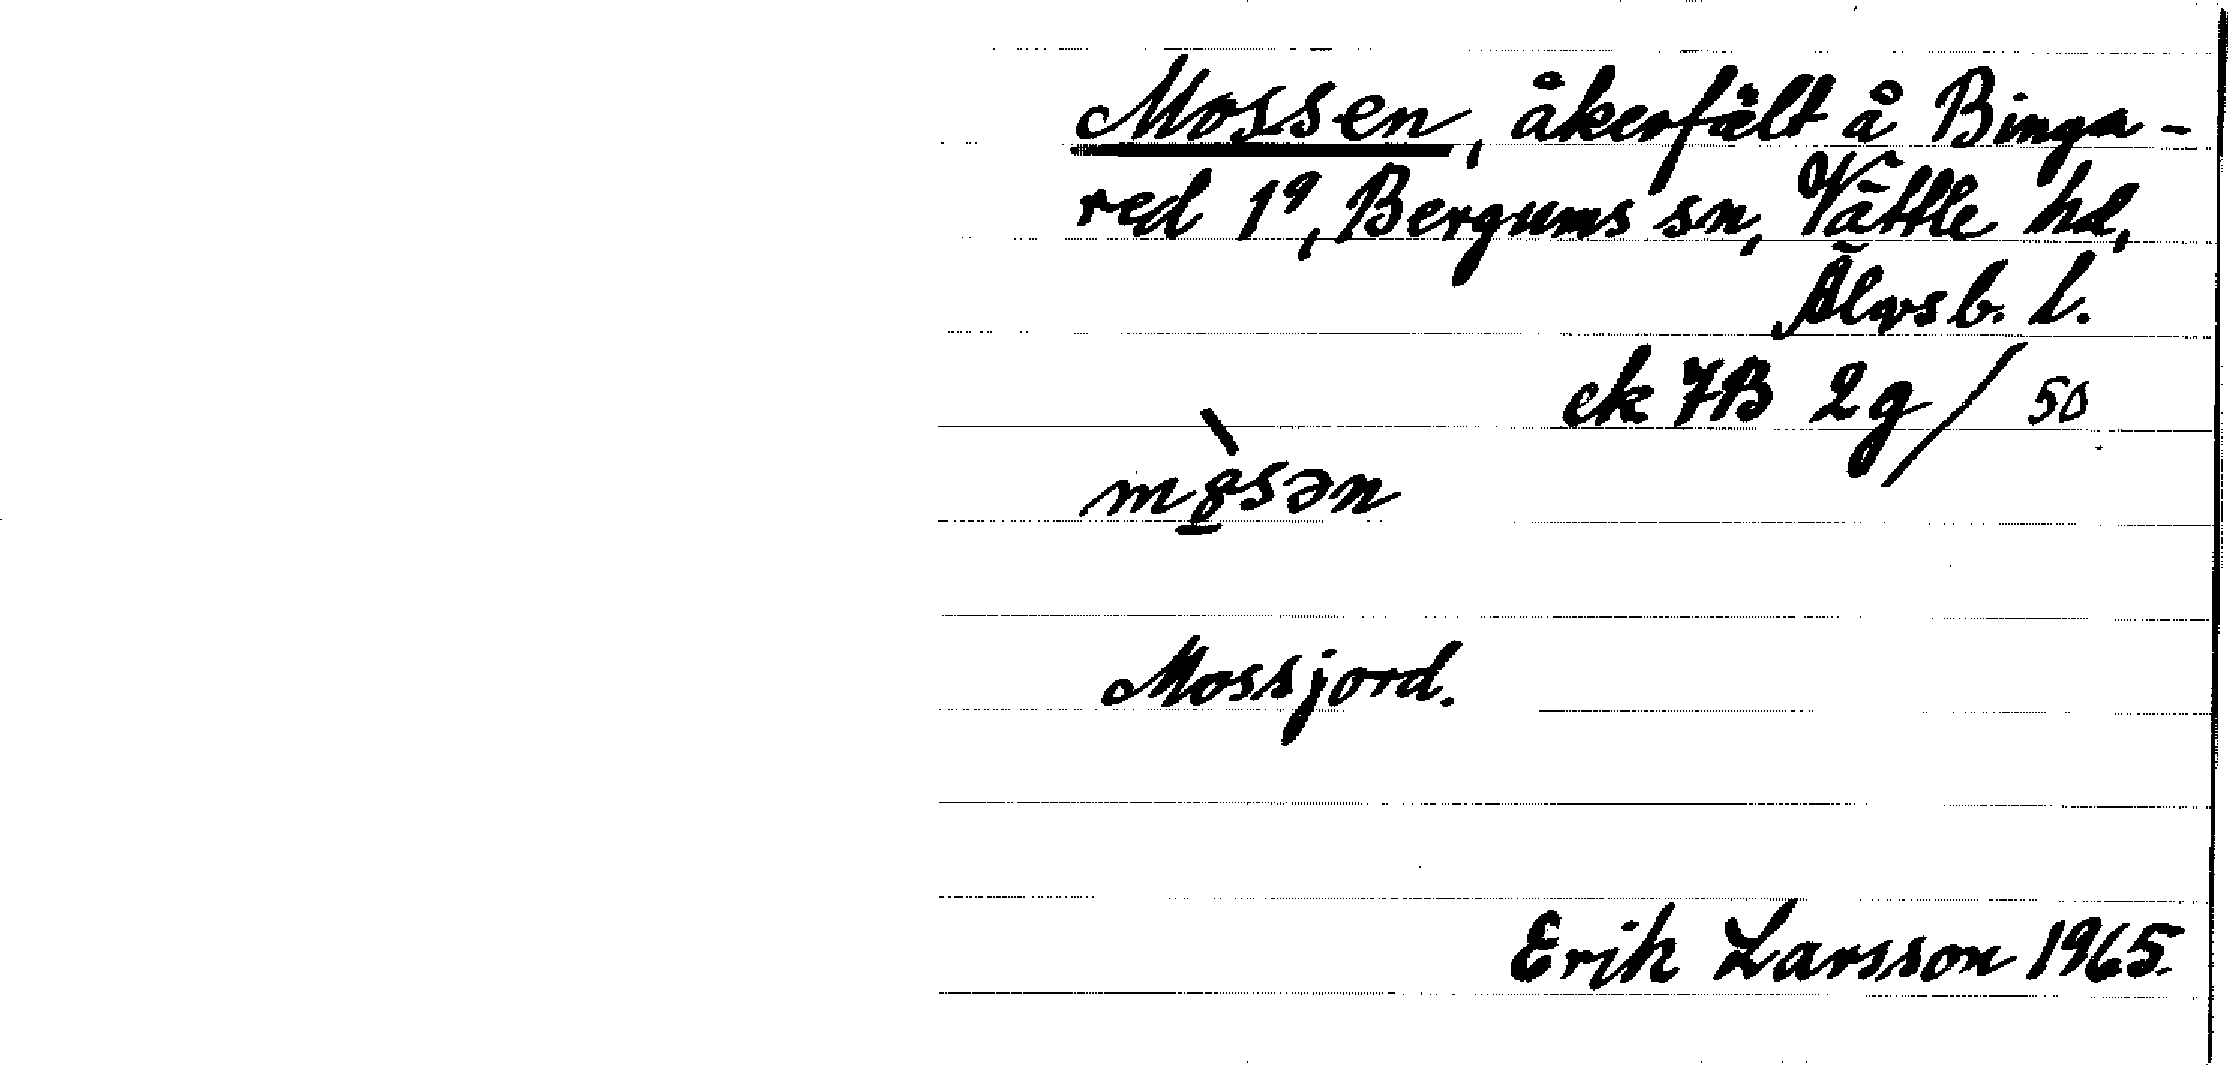 Mossen, åkerfält å Binga-
red 1⁹, Bergums sn, Vättle hd,
Älvsb. l.
ek 7B 2g/50
mò̱sən
Mossjord.
Erik Larsson 1965.